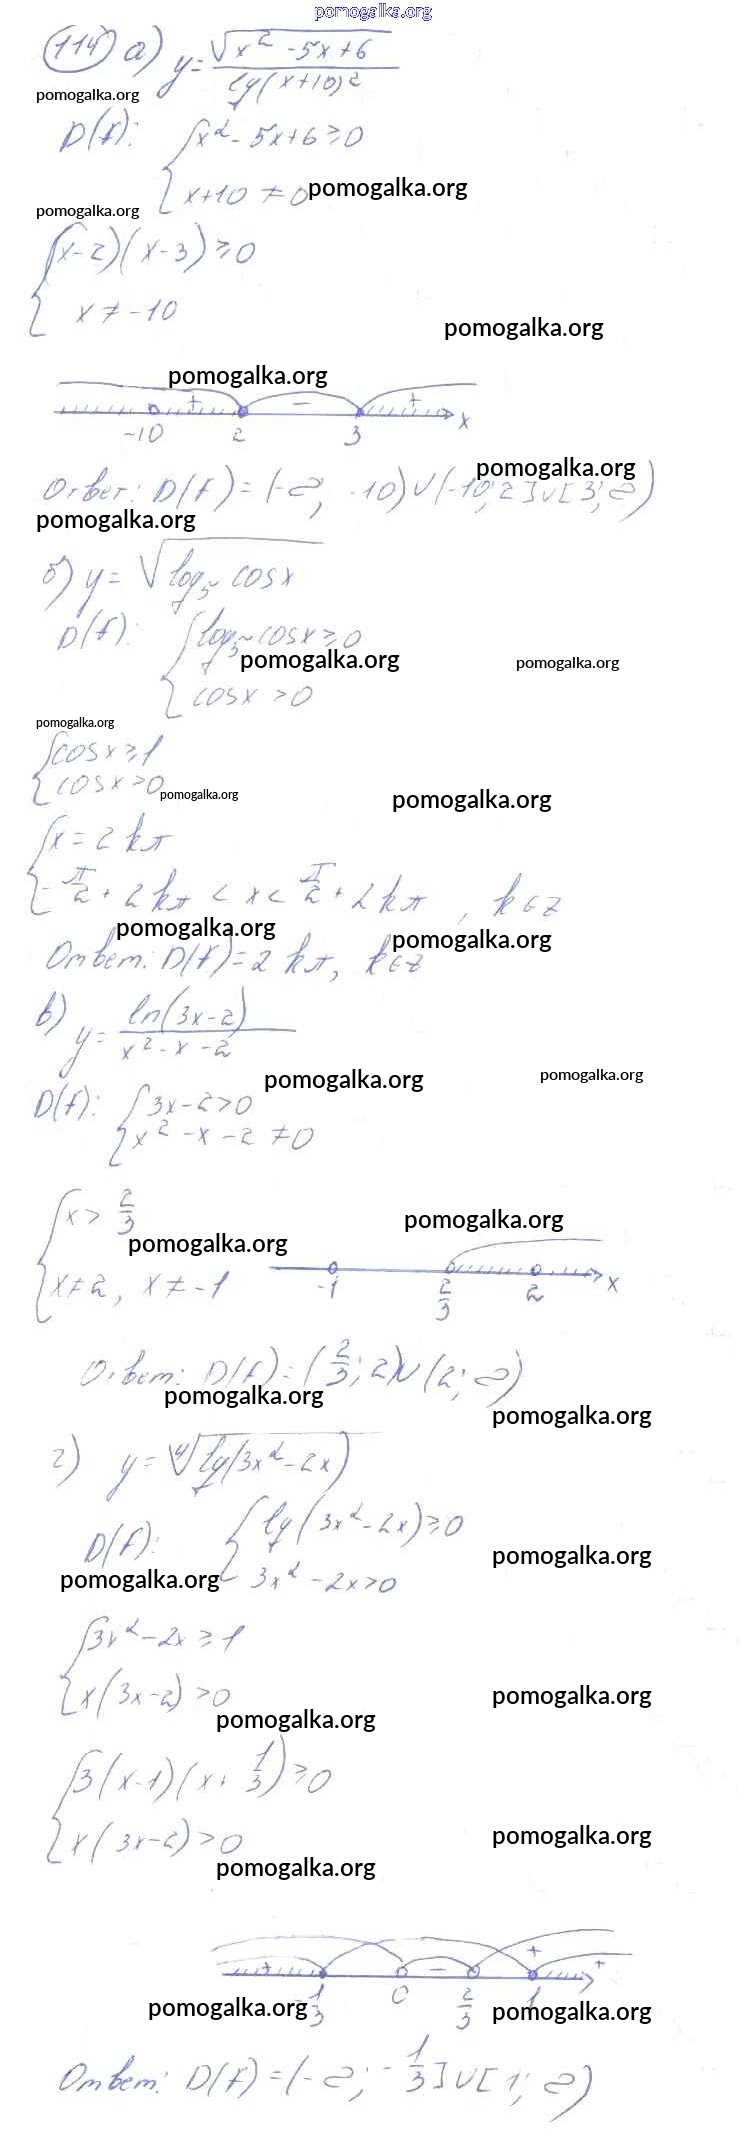 pomogalka.org
114 а) y = √(x² - 5x + 6) / lg(x+10)²
pomogalka.org
D(f): { x² - 5x + 6 ≥ 0
x + 10 ≠ 0 pomogalka.org
pomogalka.org
{ (x-2)(x-3) ≥ 0
x ≠ -10
pomogalka.org
pomogalka.org
+ − +
-10 2 3 x
pomogalka.org
Ответ: D(f) = (-∞; -10) ∪ (-10; 2] ∪ [3; ∞)
pomogalka.org
б) y = √(log₅ cosx)
D(f): { log₅ cosx ≥ 0
pomogalka.org pomogalka.org
cosx > 0
pomogalka.org
{ cosx ≥ 1
cosx > 0
pomogalka.org pomogalka.org
{ x = 2kπ
-π/2 + 2kπ < x < π/2 + 2kπ, k∈z
pomogalka.org pomogalka.org
Ответ: D(f) = 2kπ, k∈z
в) y = ln(3x-2) / (x² - x - 2)
pomogalka.org pomogalka.org
D(f): { 3x-2 > 0
x² - x - 2 ≠ 0
{ x > 2/3
pomogalka.org
pomogalka.org
x ≠ 2, x ≠ -1
-1 2/3 2 x
Ответ: D(f) = (2/3; 2) ∪ (2; ∞)
pomogalka.org
pomogalka.org
г) y = ⁴√(lg(3x² - 2x))
D(f): { lg(3x² - 2x) ≥ 0
pomogalka.org
3x² - 2x > 0
pomogalka.org
{ 3x² - 2x ≥ 1
x(3x-2) > 0
pomogalka.org
pomogalka.org
{ 3(x-1)(x + 1/3) ≥ 0
x(3x-2) > 0
pomogalka.org
pomogalka.org
+ − + +
-1/3 0 2/3 1
pomogalka.org pomogalka.org
Ответ: D(f) = (-∞; -1/3] ∪ [1; ∞)